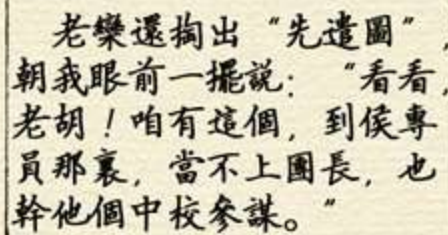 老欒還掏出“先遣圖”，
朝我眼前一擺説：“看看，
老胡！咱有這個，到侯專
員那裏，當不上團長，也
幹他個中校參謀。”